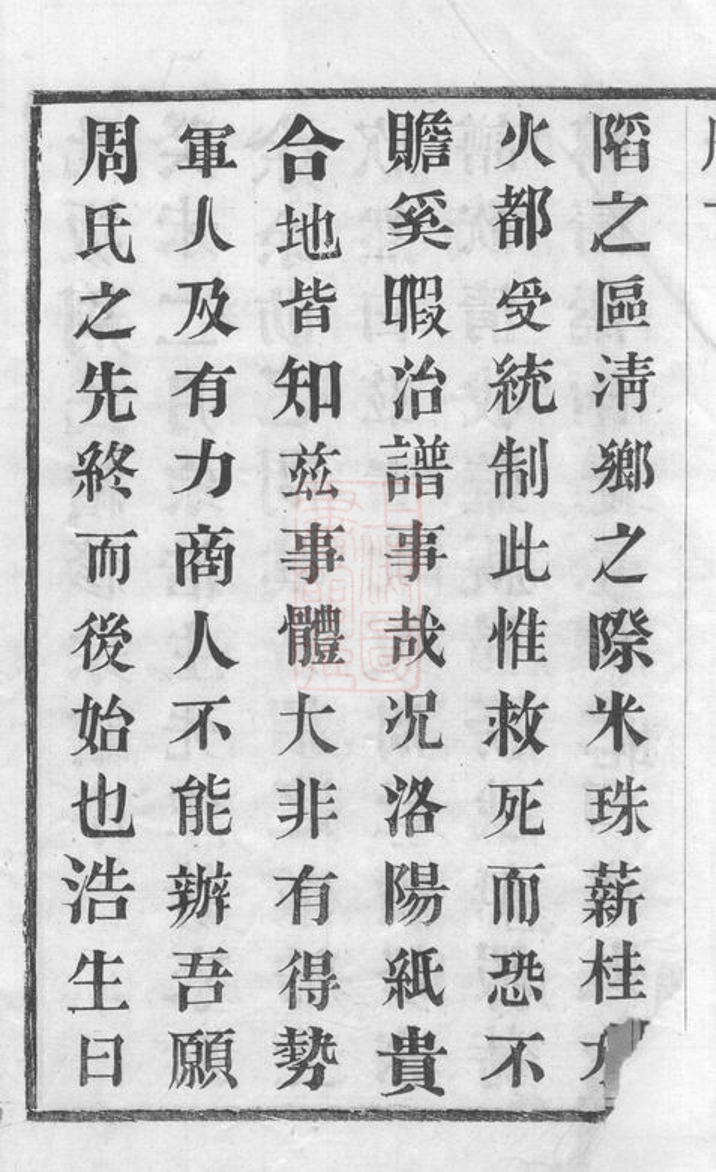 陷之區清鄉之際米珠薪桂
火都受統制此惟救死而恐不
贍奚暇治譜事哉况洛陽紙貴
合地皆知茲事體大非有得勢
軍人及有力商人不能辦吾願
周氏之先終而後始也浩生曰